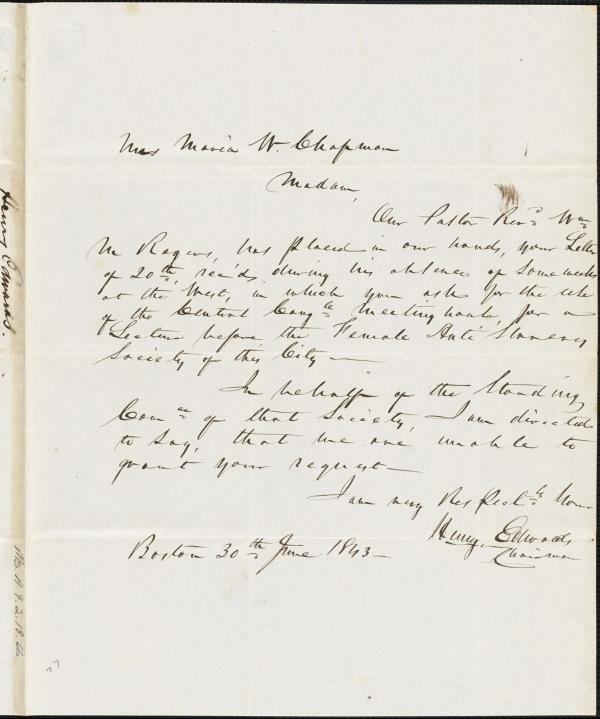 Mrs Maria W. Chapman
Madam,
Our Pastor Revd. Wm
M Rogers, has placed in our hands, your Letter
of 20th, recd. during his absence of some weeks
at the West, in which you ask for the use
of the Central Congl. Meetinghouse, for a
Lecture before the Female Anti Slavery
Society of this City—
In behalf of the Standing
Comee of that Society, I am directed
to say, that we are unable to
grant your request—
I am very Respectly. Yours
Henry Edwards
Chairman
Boston 30th June 1843—
Henry Edwards.